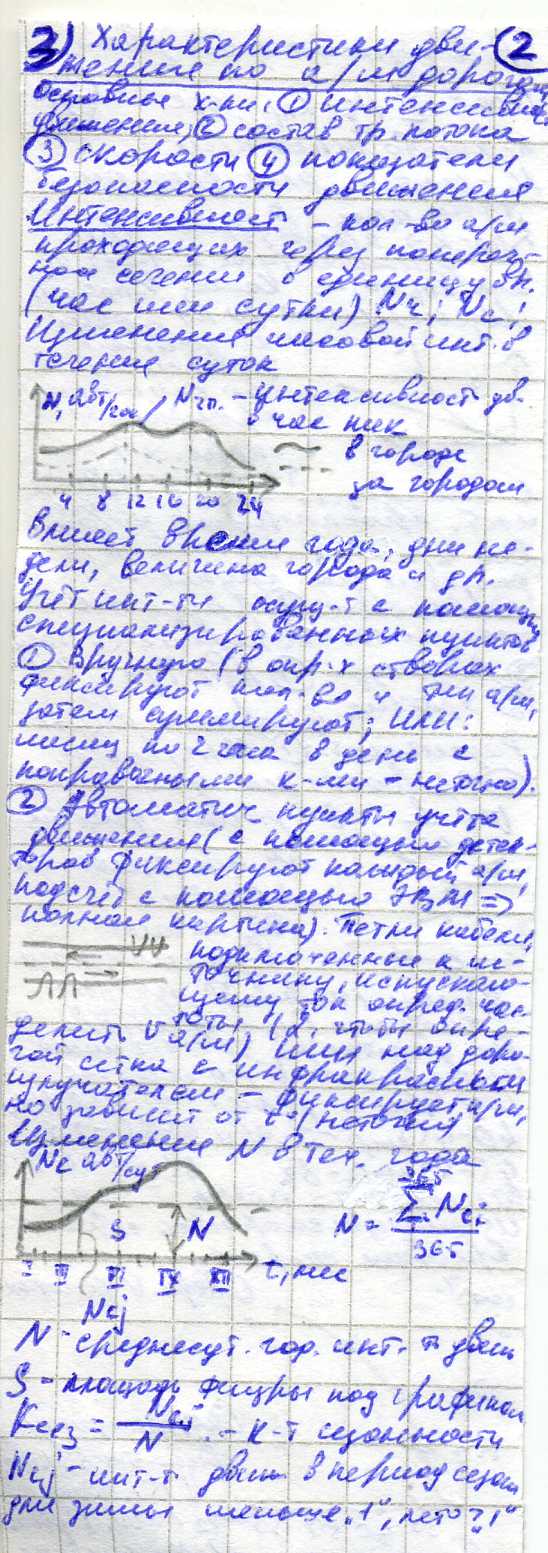 3) Характеристики дви- 2
жения по а/м дорогам
основные х-ки: ① интенсивн.
движения, ② состав тр. потока
③ скорости ④ показатели
безопасности движения
Интенсивност - кол-во а/м
проходящих через попереч-
ное сечение в единицу вр.
(час или сутки) Nч; Nс;
Изменения часовой инт. в
течение суток
N, авт/час Nчп. - интенсивность дв.
в час пик
в городе
за городом
4 8 12 16 20 24
Влияет время года, дни не-
дели, величина города и др.
Учёт инт-ти осущ-т с помощью
специализированных пунктов
① Вручную (в опр-х створах
фиксируют кол-во и тип а/м,
затем суммируют; ИЛИ:
месяц по 2 часа в день с
поправочными к-ми - неточно).
② Автоматич пункты учёта
движения (с помощью детек-
торов фиксируют каждый а/м,
подсчёт с помощью ЭВМ =>
полная картина). Петли кабеля,
подключенные к ис-
точнику, испускаю-
щему ток опред. час-
тоты (2, чтобы опре-
делить v а/м) Или над доро-
гой сетка с инфракрасным
излучателем - фиксирует а/м,
но зависит от t° (неточен)
Изменение N в теч. года
Nс авт/сут
S N
I III VI IX XII t, мес
Ncj
N = 365 Σ Nci / 365
N - среднесут. год. инт-т движ
S - площадь фигуры под графиком
Kсез = Ncj / N - к-т сезонности
Ncj - инт-т движ в период сезона
для зимы меньше „1“, лето > „1“